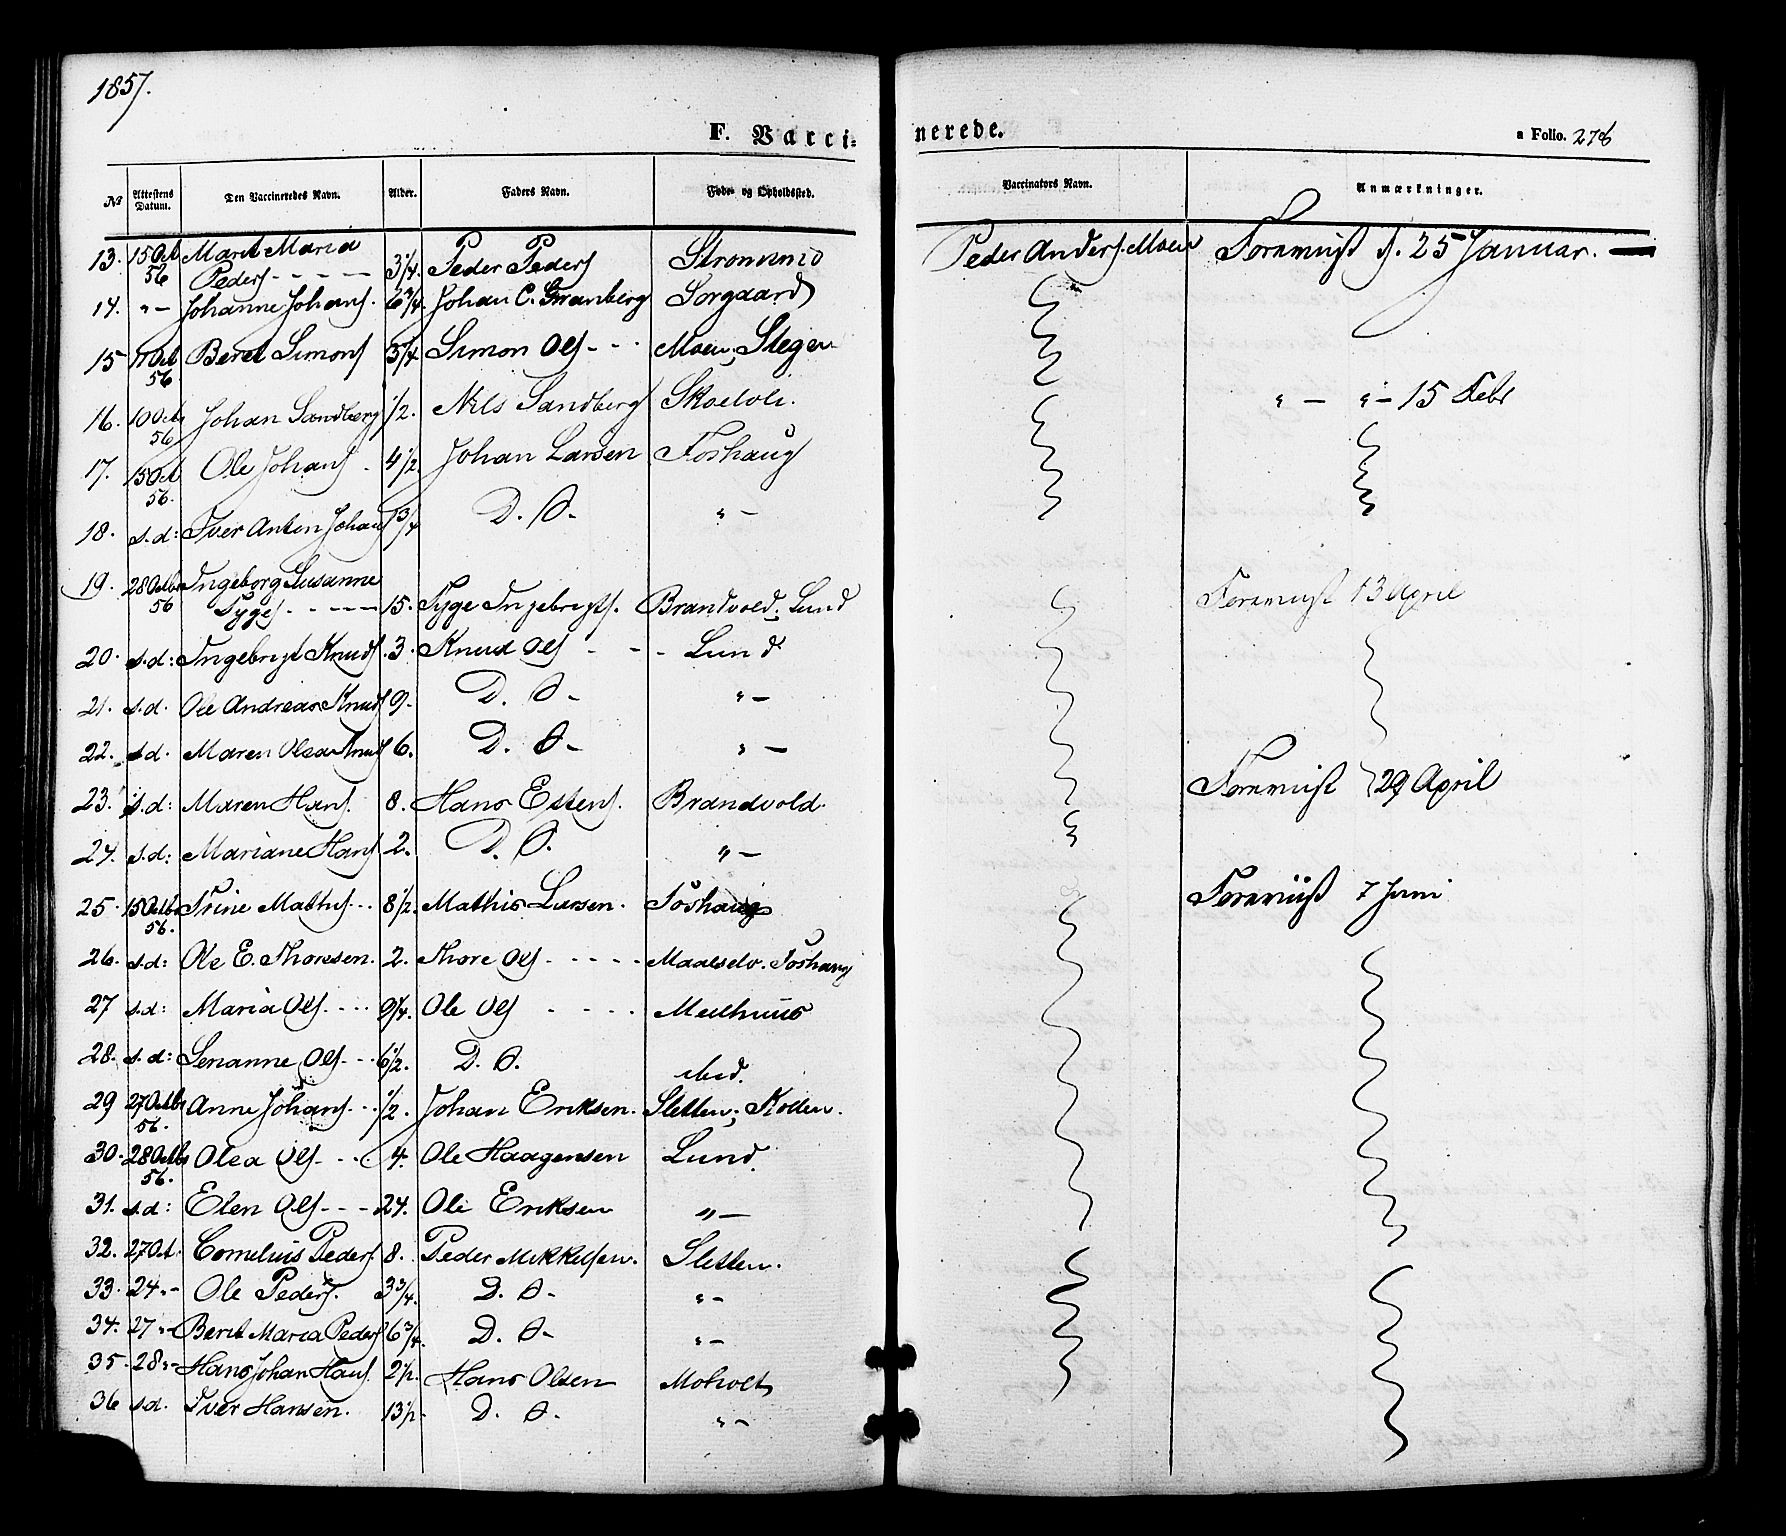 1857.
F. Vacci-
nerede.
a Folio. 276
№ Attestens Datum. Den Vaccineredes Navn. Alder. Faders Navn. Føde- og Opholdssted. Vaccinators Navn. Anmærkninger.
13. 15 Oct 56 Marit Maria Peders - - - - 3 1/4. Peder Peders Strømmid Peder Anders. Moen Foreviist d. 25 Januar. —
14. "— Johanne Johans. 6 3/4. Johan C. Granberg Sorgaard
15 11 Oct 56. Beret Simons 3 3/4 Simon Ols - - - Moen; Slegen
16. 10 Oct 56 Johan Sandberg 1/2. Nils Sandberg Skoelvli. "— "— 15 Febr
17. 15 Oct 56. Ole Johans 4 1/2 Johan Larsen Foshaug
18. s.d: Iver Anton Johans 1 3/4 D. O. "—
19. 28 Octbr 56 Ingeborg Susanne Tyges - - - - 15. Tyge Ingebrigts. Brandvold; Lund Foreviist 13 April
20. s.d: Ingebrigt Knuds. 3. Knud Ols - - - Lund
21. s.d. Ole Andreas Knuds 9. D. O. "—
22. s.d. Maren Olea Knuds 6. D. O. "—
23. s.d: Maren Hans. 8. Hans Estens. Brandvold. Foreviist 29 April
24. s.d: Mariane Hans 2. D. O. "—
25. 15 Octbr 56. Trine Mathis. - - 8 1/2. Mathis Larsen. Foshaug Foreviist 7 Juni
26. s.d: Ole E. Thoresen. 2. Thore Ols - - - - - Maalselv. Foshaug
27 s.d: Maria Ols. - - - 9 1/4. Ole Ols - - - - Meelhuus
28. s.d: Lenanne Ols. - - 6 1/2. D. O. ibid.
29 27 Octbr 56. Anne Johans. - - 1/2. Johan Eriksen. Sletten; Kollen.
30. 28 Octbr 56. Olea Ols. - - 4. Ole Haagensen Lund.
31. s.d: Elen Ols - - - 24. Ole Eriksen "—
32. 27 Oct. Cornelius Peders. 8. Peder Mikkelsen. Sletten.
33. 24 "— Ole Peders. 3 3/4. D. O. "—
34. 27 "— Berit Maria Peders 6 3/4. D. O. "—
35. 28 "— Hans Johan Hans. 2 1/2. Hans Olsen Moholt
36 s.d. Iver Hansen. 13 1/2. D. O. "—